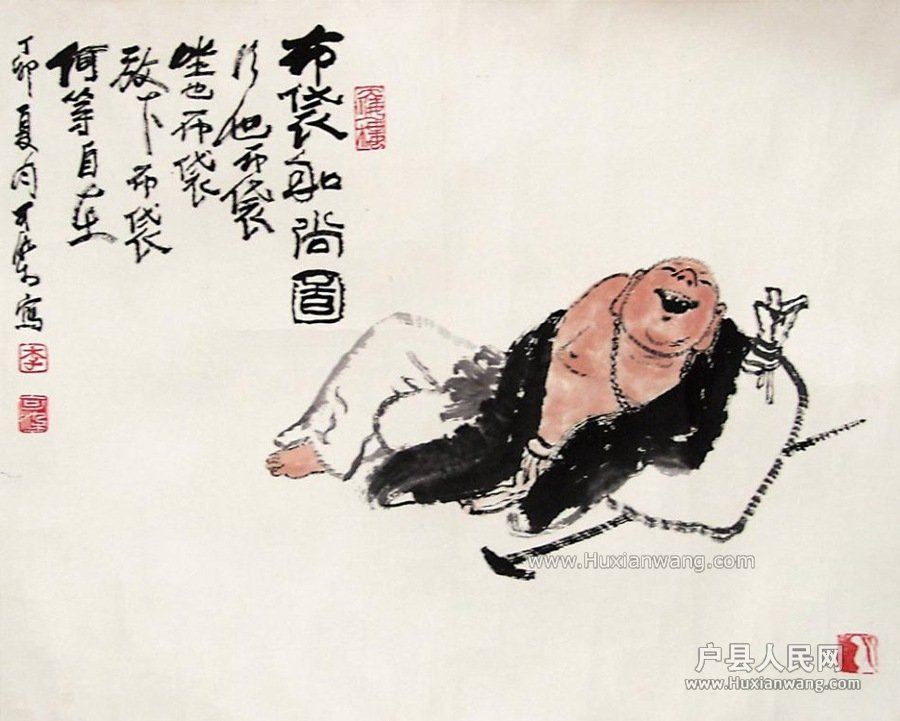 布袋和尚图
行也布袋
坐也布袋
放下布袋
何等自在
丁卯夏月可染写
李
可染
www.Huxianwang.com
户县人民网
www.Huxianwang.com